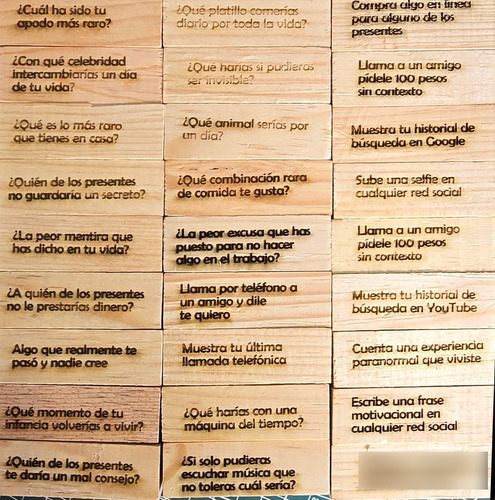 ¿Cuál ha sido tu
apodo más raro?
¿Con qué celebridad
intercambiarías un día
de tu vida?
¿Qué es lo más raro
que tienes en casa?
¿Quién de los presentes
no guardaría un secreto?
¿La peor mentira que
has dicho en tu vida?
¿A quién de los presentes
no le prestarías dinero?
Algo que realmente te
pasó y nadie cree
¿Qué momento de tu
infancia volverías a vivir?
¿Quién de los presentes
te daría un mal consejo?
¿Qué platillo comerías
diario por toda la vida?
¿Qué harías si pudieras
ser invisible?
¿Qué animal serías por
un día?
¿Qué combinación rara
de comida te gusta?
¿La peor excusa que has
puesto para no hacer
algo en el trabajo?
Llama por teléfono a
un amigo y dile
te quiero
Muestra tu última
llamada telefónica
¿Qué harías con una
máquina del tiempo?
¿Si solo pudieras
escuchar música que
no toleras cuál sería?
Compra algo en línea
para alguno de los
presentes
Llama a un amigo
pídele 100 pesos
sin contexto
Muestra tu historial de
búsqueda en Google
Sube una selfie en
cualquier red social
Llama a un amigo
pídele 100 pesos
sin contexto
Muestra tu historial de
búsqueda en YouTube
Cuenta una experiencia
paranormal que viviste
Escribe una frase
motivacional en
cualquier red social